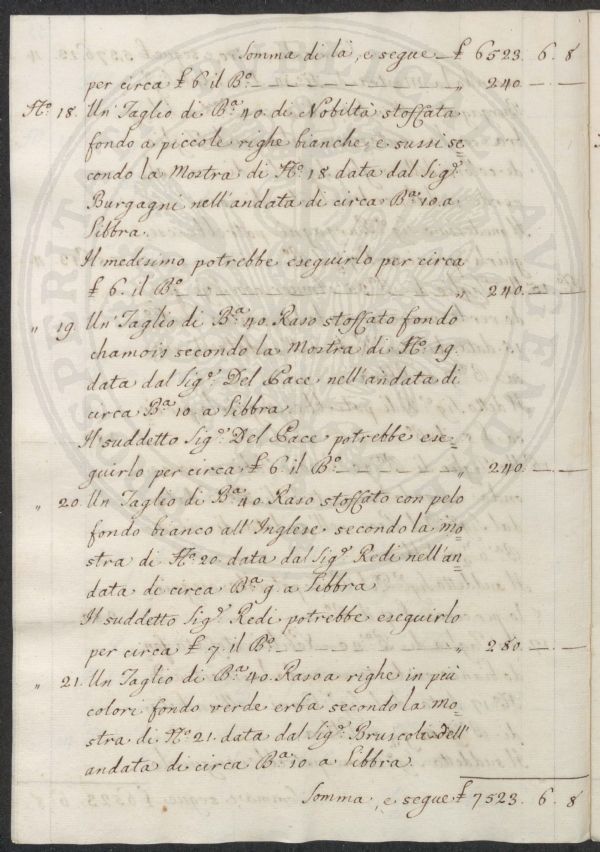 Somma di là, e segue £ 6523. 6. 8
per circa £ 6 il B.º „ 240. — . —
N.º 18. Un Taglio di B.ª 40. di Nobiltà stoffata
fondo a piccole righe bianche, e sussi se=
condo la Mostra di N.º 18 data dal Sig.ʳ
Burgagni nell'andata di circa B.ª 10. a
Libbra.
Il medesimo potrebbe eseguirlo per circa
£ 6. il B.º „ 240. — . —
„ 19. Un Taglio di B.ª 40. Raso stoffato fondo
chamois secondo la Mostra di N.º 19.
data dal Sig.ʳ Del Pace nell'andata di
circa B.ª 10. a Libbra.
Il suddetto Sig.ʳ Del Pace potrebbe ese=
guirlo per circa £ 6. il B.º „ 240. — . —
„ 20. Un Taglio di B.ª 40. Raso stoffato con pelo
fondo bianco all'Inglese secondo la mo=
stra di N.º 20. data dal Sig.ʳ Redi nell'an=
data di circa B.ª 9. a Libbra.
Il suddetto Sig.ʳ Redi potrebbe eseguirlo
per circa £ 7. il B.º „ 280. — . —
„ 21. Un Taglio di B.ª 40. Raso a righe in più
colori fondo verde erba secondo la mo=
stra di N.º 21. data dal Sig.ʳ Bruscoli dell'
andata di circa B.ª 10. a Libbra.
Somma, e segue £ 7523. 6. 8